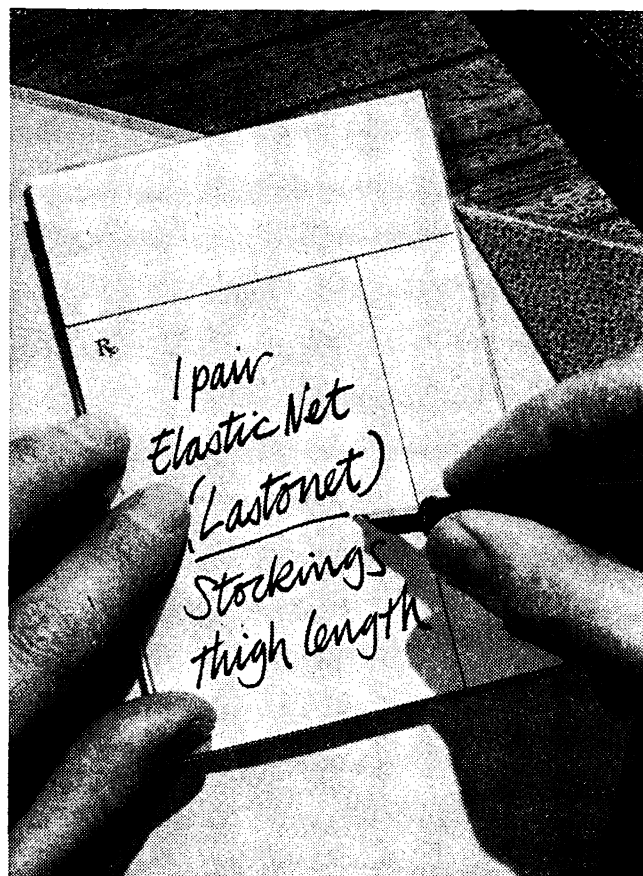 ℞
1 pair
Elastic Net
(Lastonet)
Stockings
thigh length